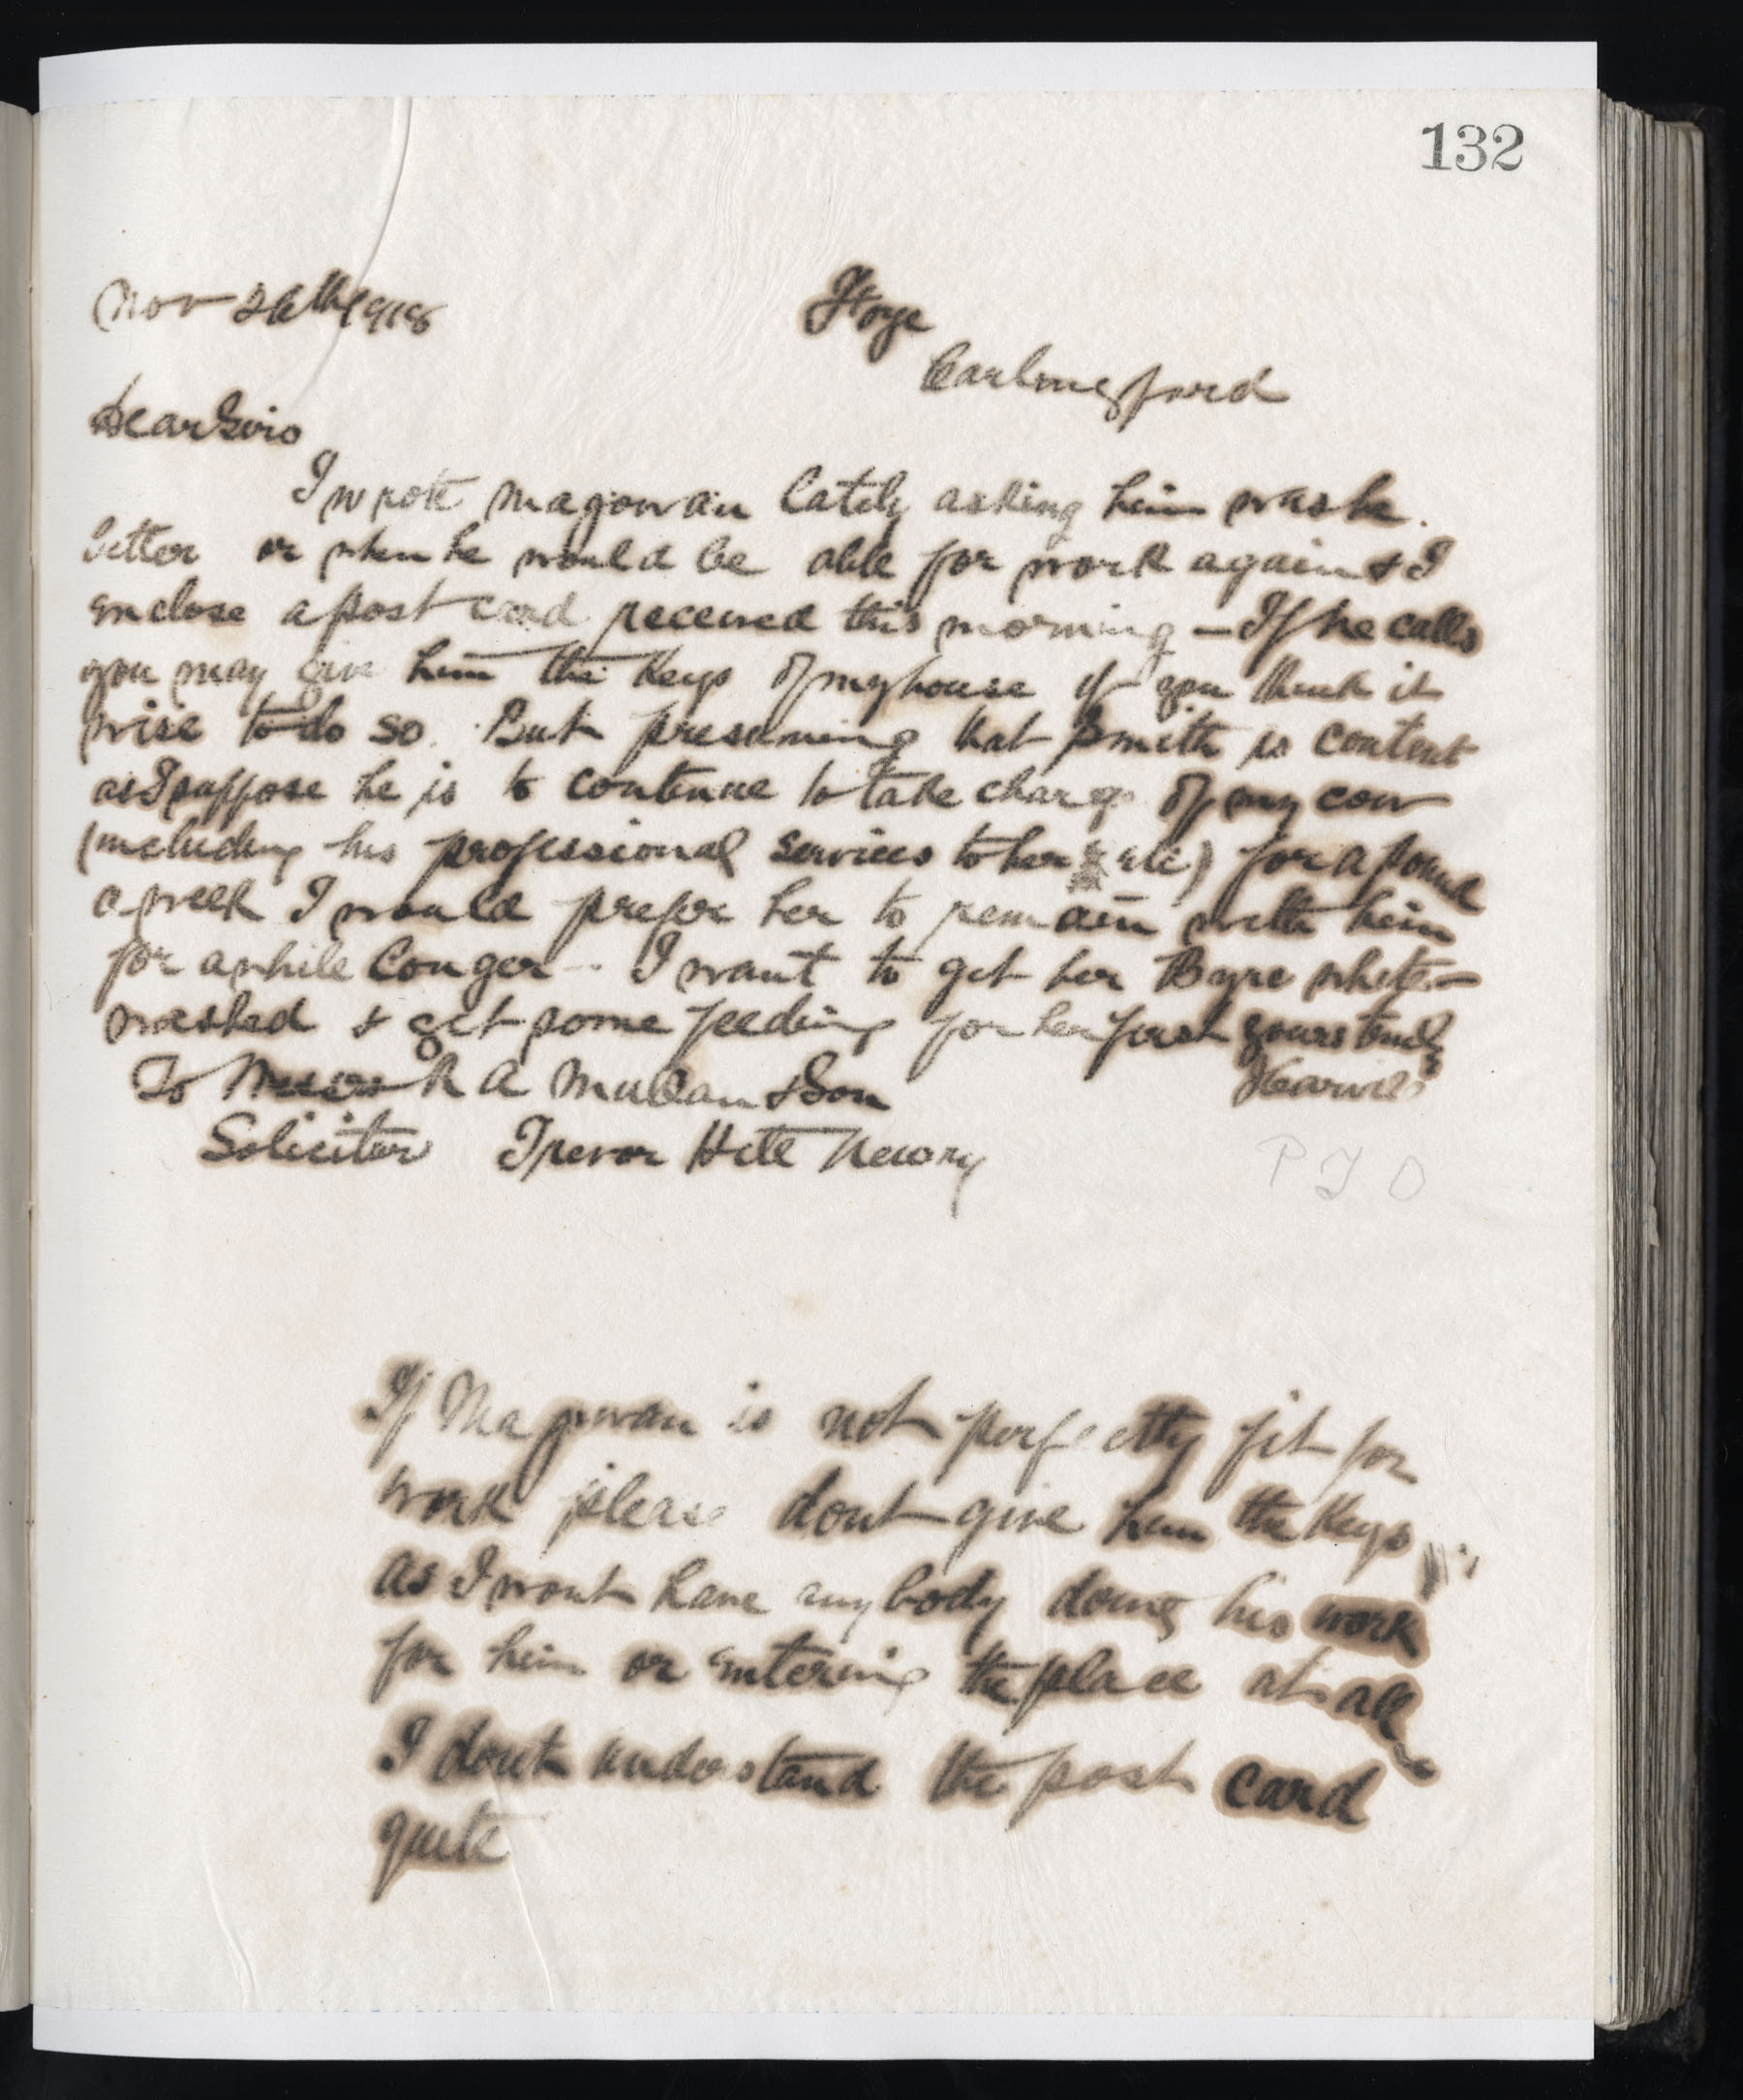 132
Nov 26th 1918
Foye
Carlingford
Dear Sirs
I wrote Magowan lately asking him was he
better or when he would be able for work again & I
enclose a post card received this morning - If he calls
you may give him the Keys of my house if you think it
wise to do so. But presuming that Smith is content
as I suppose he is to continue to take charge of my cow
(including his professional services to her & etc) for a pound
a week I would prefer her to remain with him
for a while longer - I want to get her Byre white-
washed & get some feeding for her first yours truly
To Messrs R A Mullan & Son
Solicitor Trevor Hill Newry
P T O
If Magowan is not perfectly fit for
work please dont give him the Keys
as I wont have anybody doing his work
for him or entering the place at all
I dont understand the post card
quite